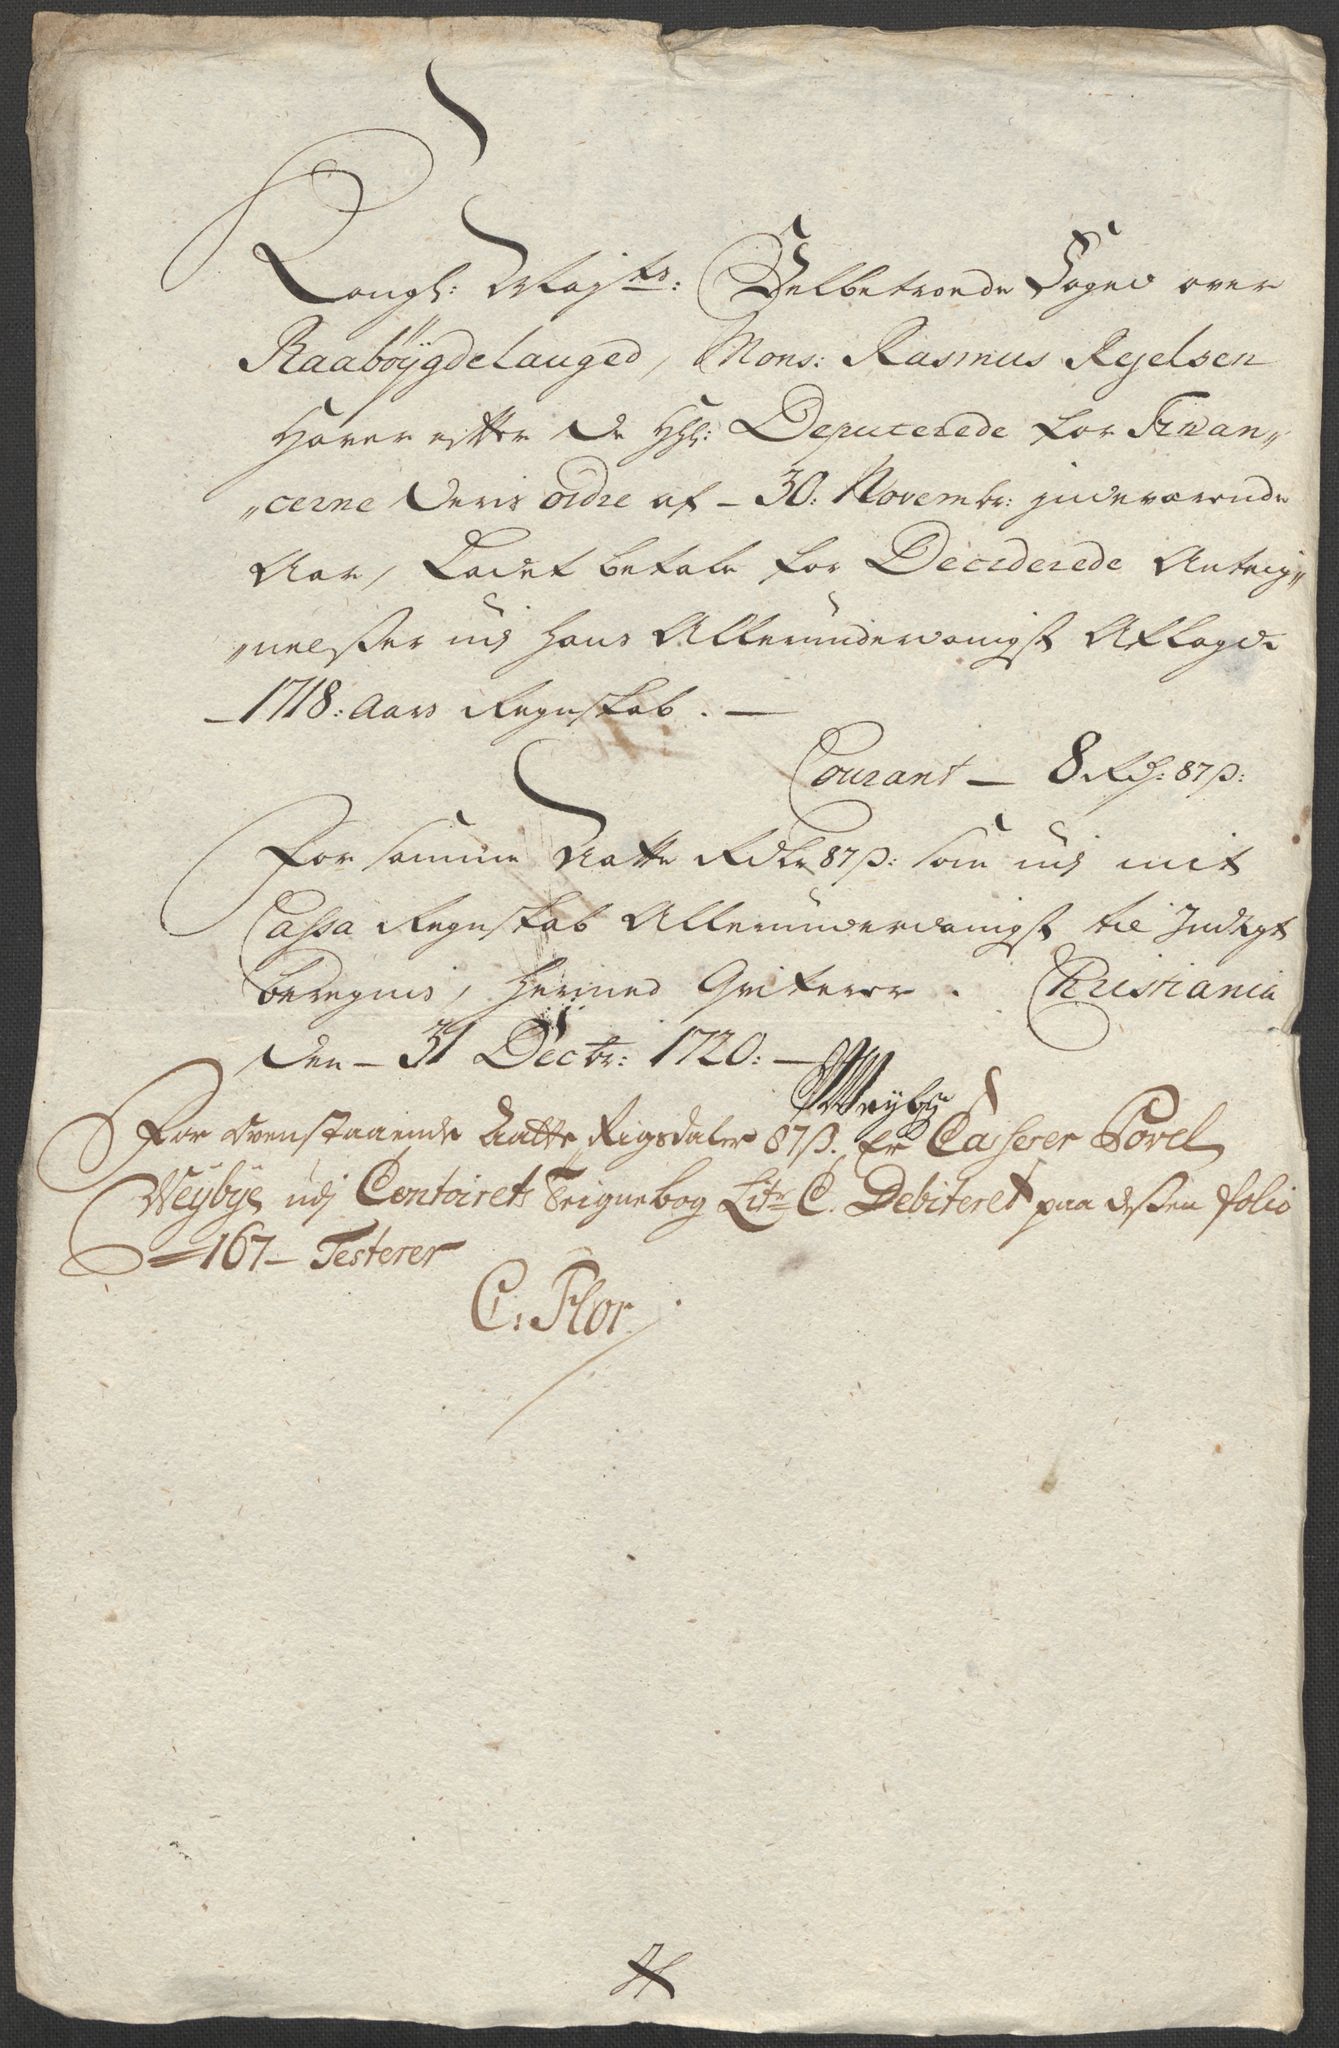 Kongl: Maÿts: Velbetroede Foged over
Raabøÿgdelauged, Mons: Rasmus Rejelsen
Haver efter de HH: Deputerede for Finan„
„cerne deris ordre af – 30: Novembr: jndeværende
Aar, Ladet betale for Deciderede Anteig„
„nelsser udj hans Allerunderdanigst Aflagde
– 1718: Aars Regnskab. —
Courant — 8 Rd: 87 ß:
For samme Aatte Rdlr 87 ß: som udj mit
Cassa Regnskab Allerunderdanigst til Indtegt
beregnis, hermed Qviterer. Christiania
den – 31 Decbr: 1720: —
Weyby
For ovenstaaende Aatte Rigsdaler 87 ß. Er Casserer Povel
Weÿbÿe udj Contoirets Teignebog Litr C. Debiteret paa dessen folio
— 167 — Testerer
C: Flor